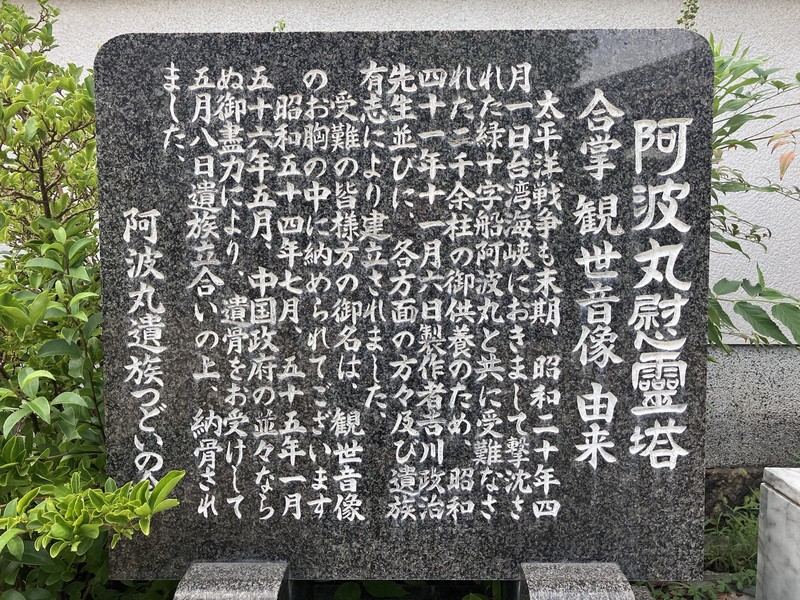 阿波丸慰靈塔
合掌 観世音像 由来
太平洋戦争も末期、昭和二十年四
月一日台湾海峡におきまして撃沈さ
れた緑十字船阿波丸と共に受難なさ
れた二千余柱の御供養のため、昭和
四十一年十一月六日製作者吉川政治
先生並びに、各方面の方々及び遺族
有志により建立されました、
受難の皆様方の御名は、観世音像
のお胸の中に納められてございます
昭和五十四年七月、五十五年一月
五十六年五月、中国政府の並々なら
ぬ御盡力により、遺骨をお受けして
五月八日遺族立合いの上、納骨され
ました、
阿波丸遺族つどいの